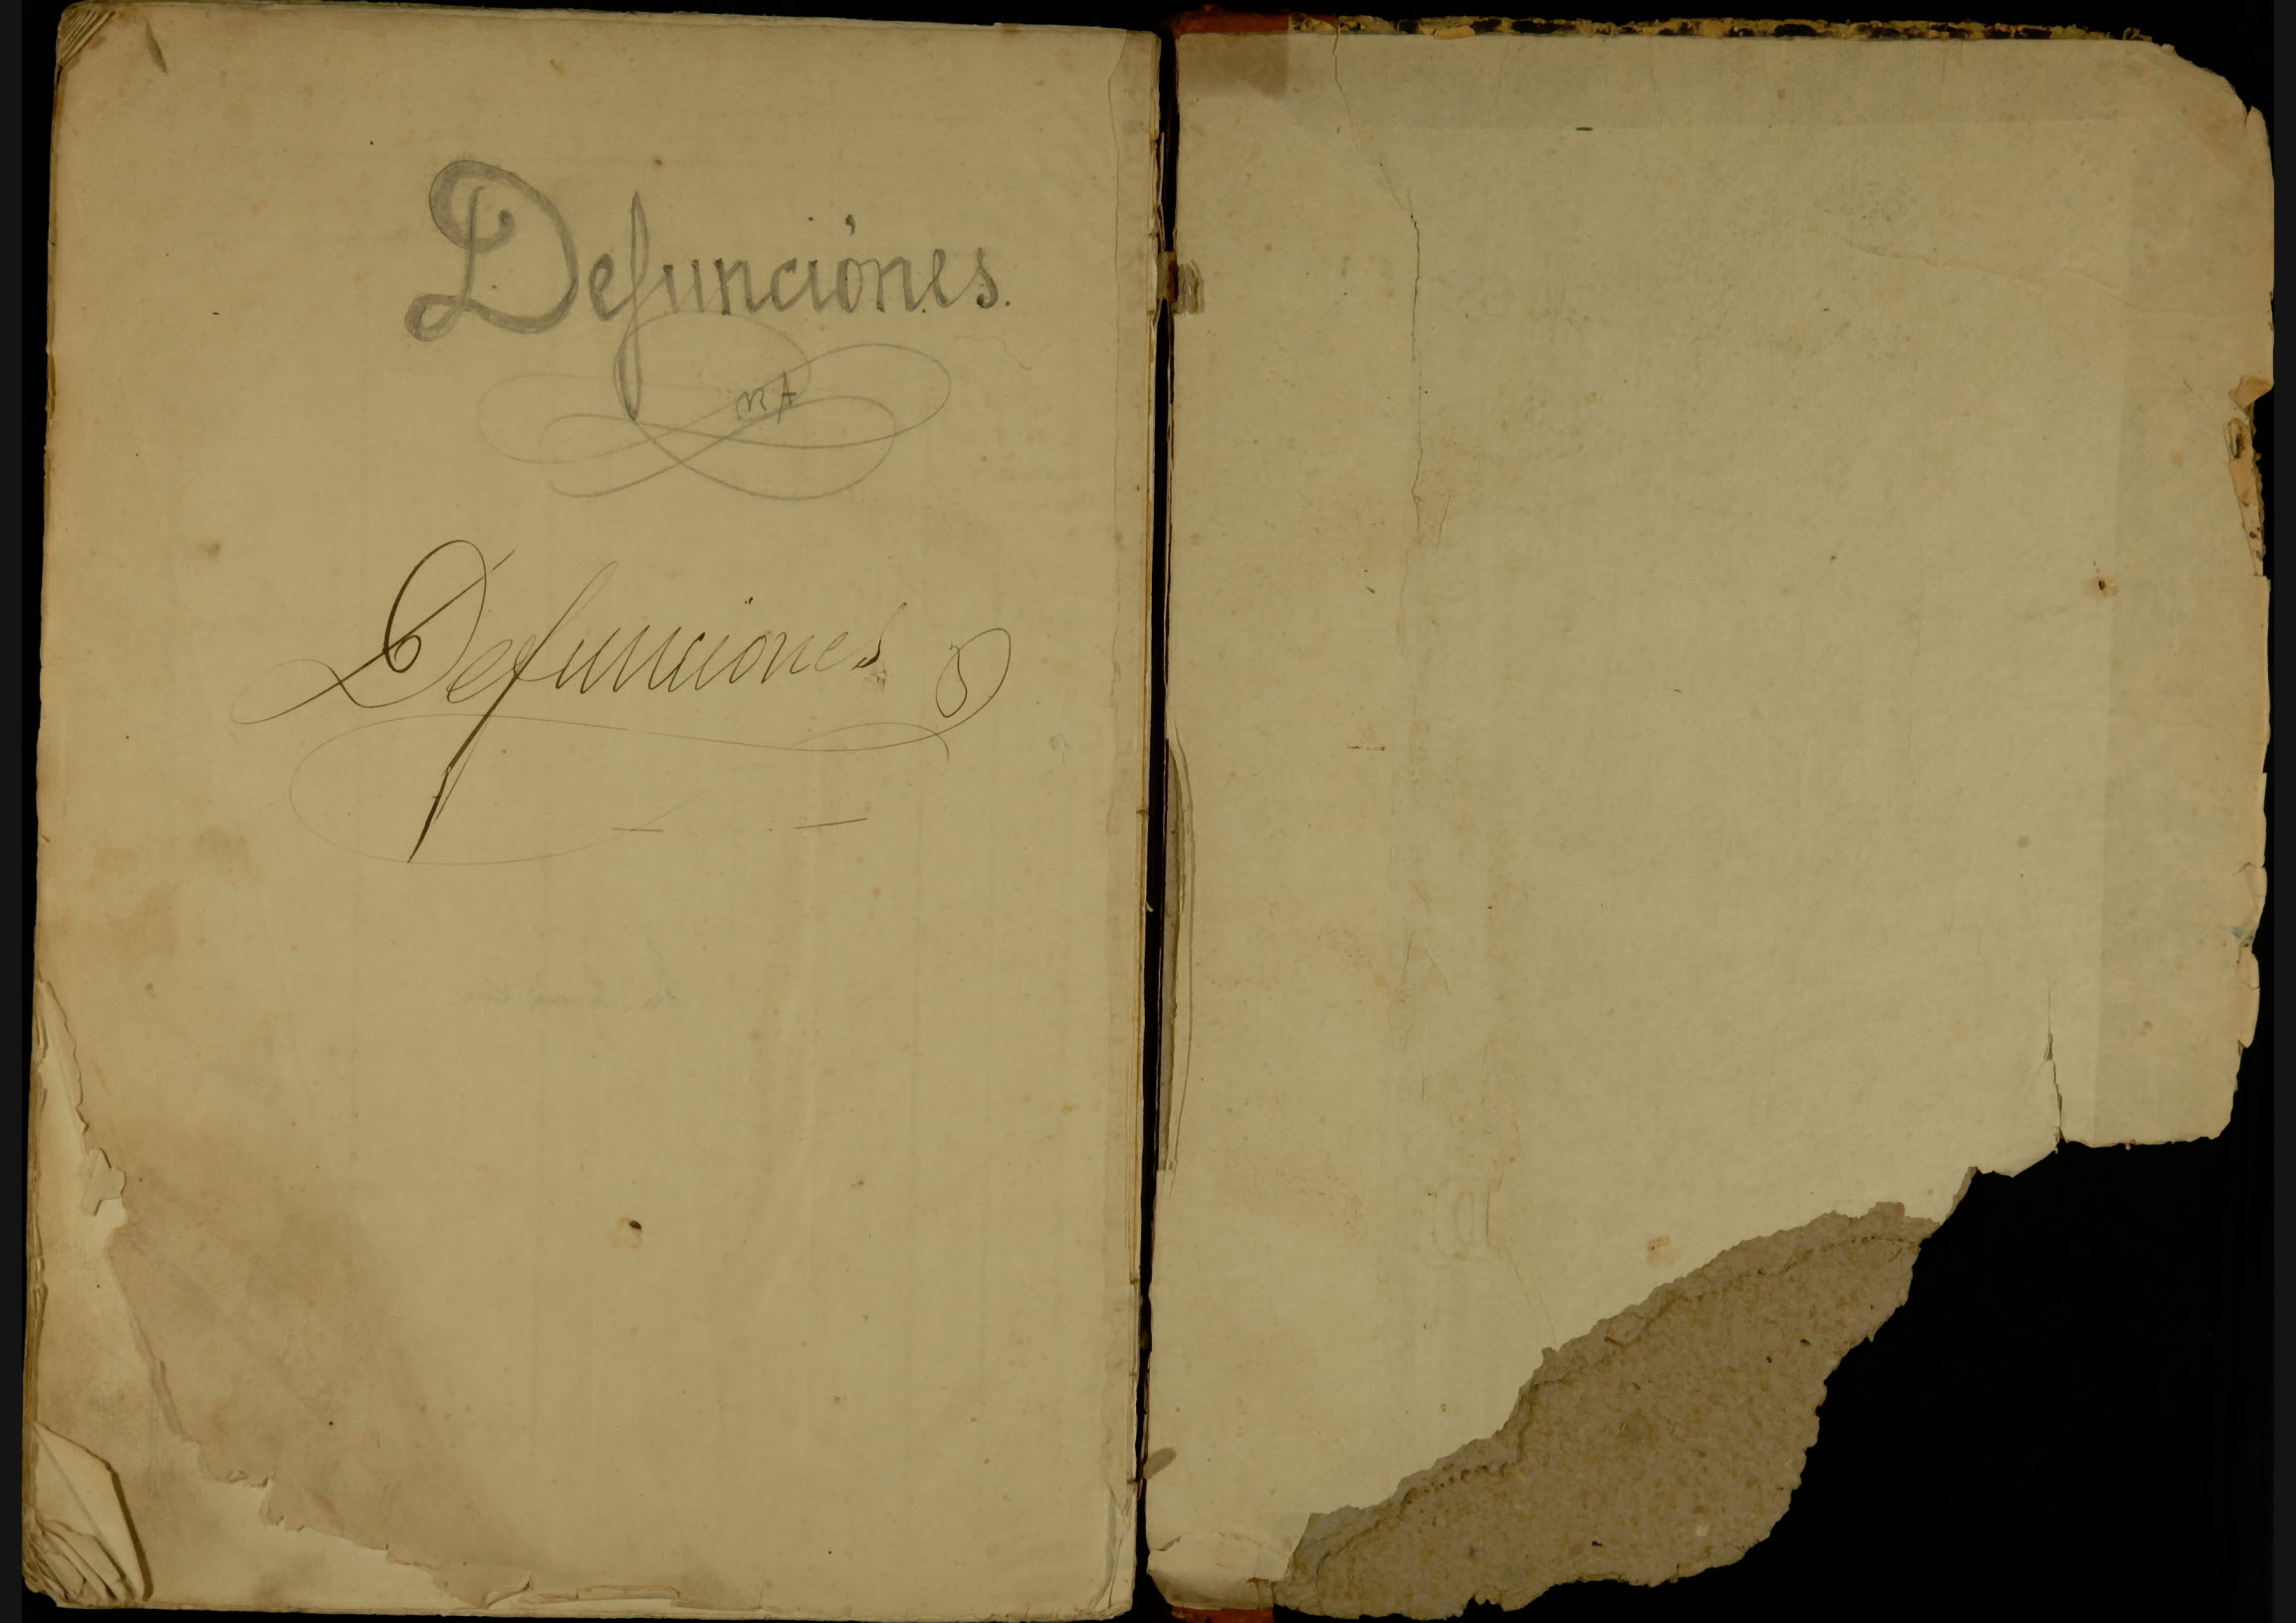 Defunciónes.
Defunciones